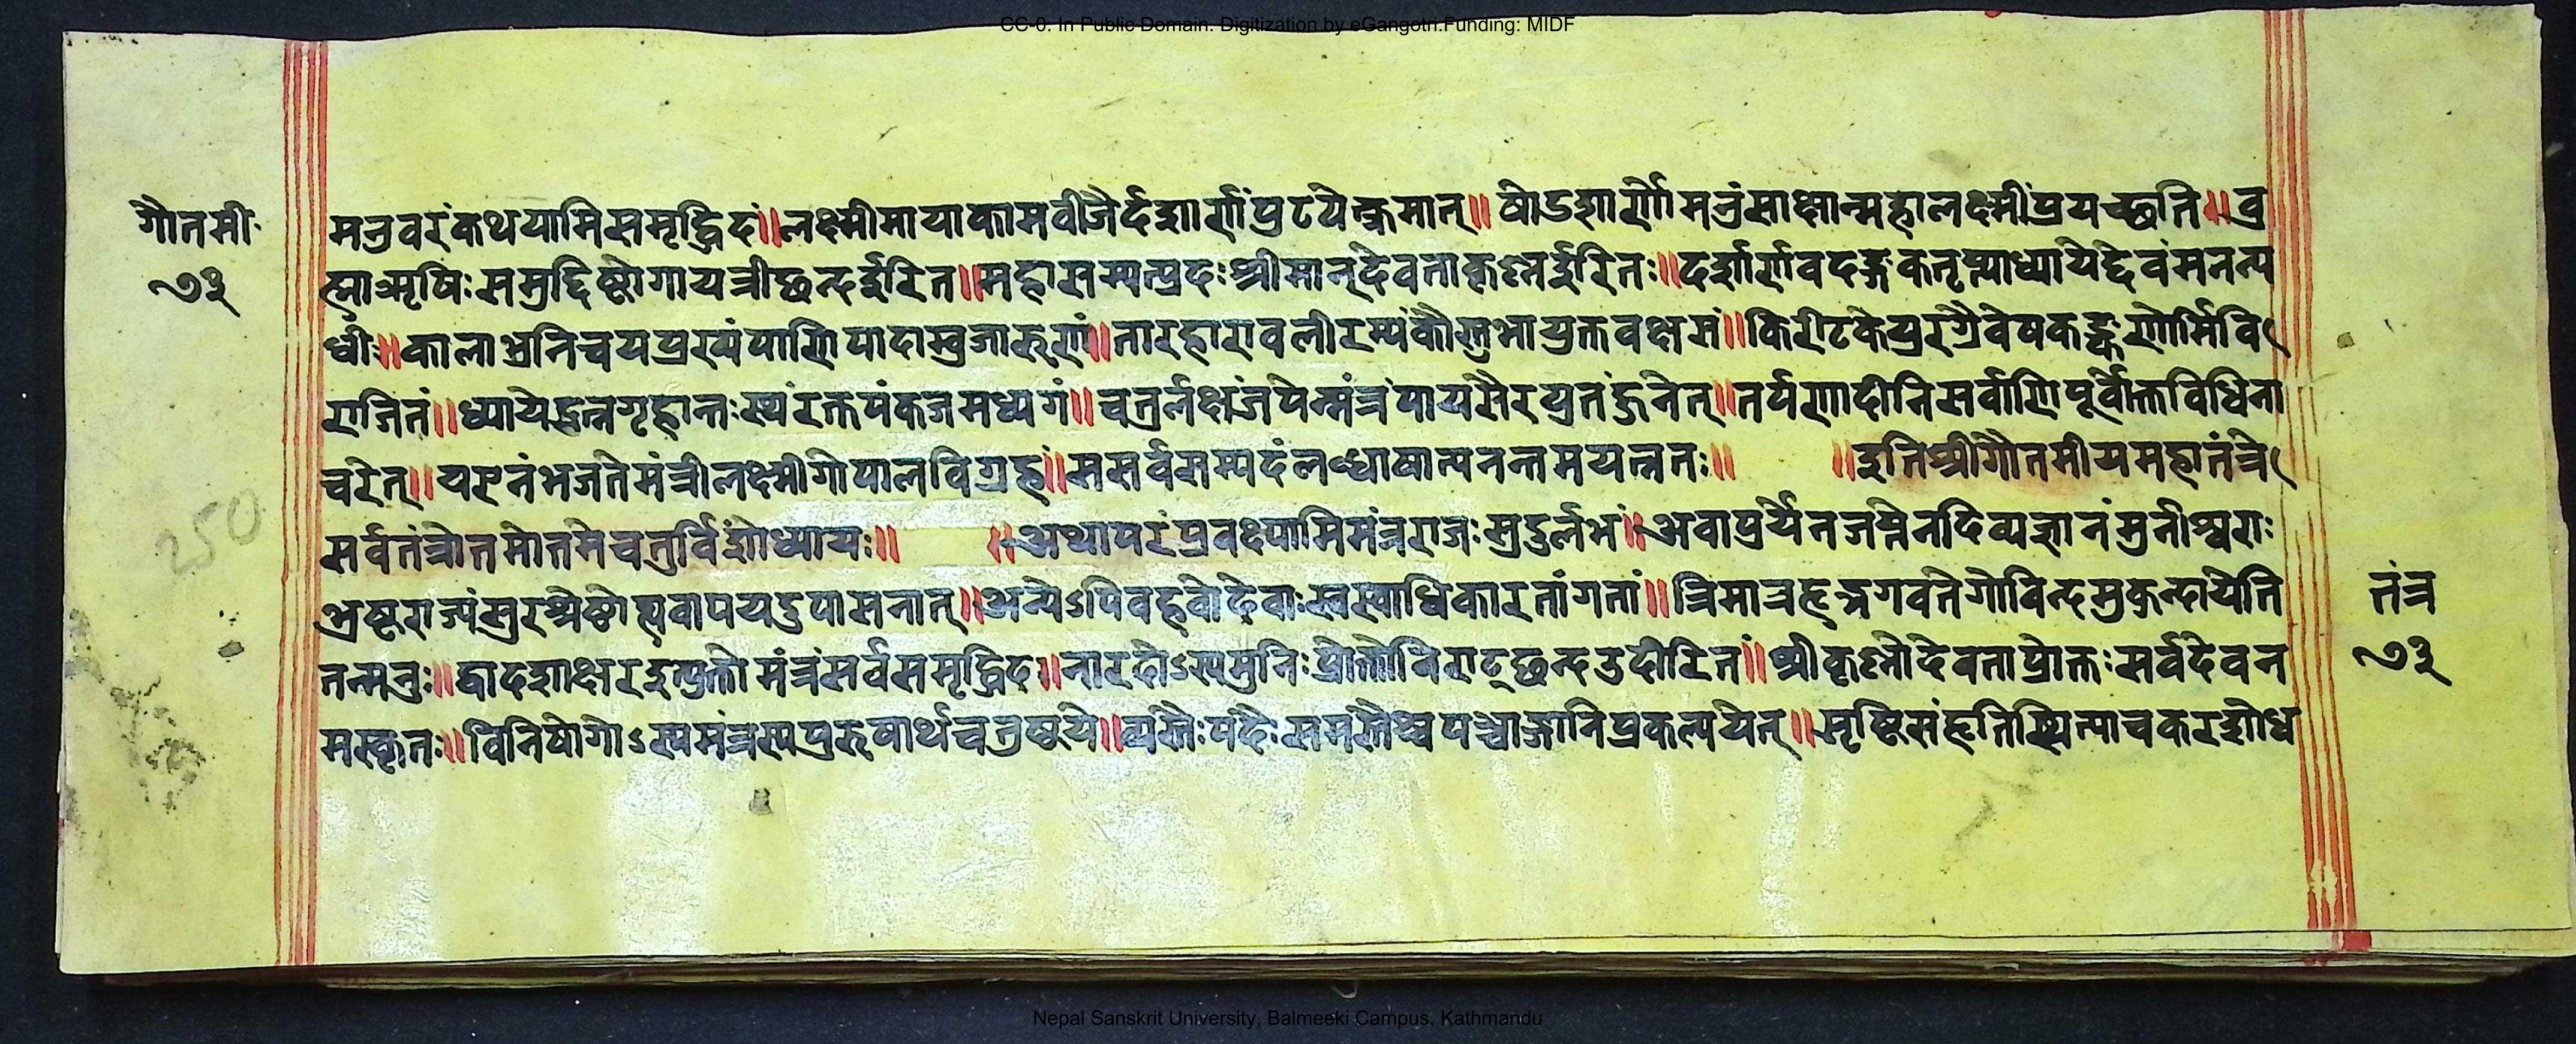 CC-0. In Public Domain. Digitization by eGangotri.Funding: MIDF
गौतमी॰
७३
मनुवरंकथयामिसमृद्धिदं॥लक्ष्मीमायाकामवीजैर्दशार्णंपुटयेत्क्रमात्॥षोडशार्णोमनुंसाक्षान्महालक्ष्मींप्रयच्छति॥ब्र
ह्माऋषिःसमुद्दिष्टोगायत्रीछन्दईरित॥महासम्पत्प्रदःश्रीमान्देवताकृष्णईरितः॥दर्शार्णवदङ्गकतृप्त्याध्यायेद्देवंमनन्य
धीः॥कालाभ्रनिचयप्रख्यंपाणिपादाम्बुजारुणं॥तारहारावलीरम्यंकौस्तुभायुक्तवक्षसं॥किरीटकेयुरग्रैवेषकङ्कणोर्मिवि
राजितं॥ध्यायेद्रत्नगृहान्तःस्थंरक्तपंकजमध्यगं॥चतुर्लक्षंजपेन्मंत्रंपायसैरयुतंहुनेत्॥तर्पणादीनिसर्वाणिपूर्वोक्तविधिना
चरेत्॥यएनंभजतेमंत्रीलक्ष्मीगोपालविग्रहं॥ससर्वसम्पदंलब्धाषात्यनन्तमयत्नतः॥ ॥इतिश्रीगौतमीयमहातंत्रे
सर्वतंत्रोत्तमोत्तमेचतुर्विंशोध्यायः॥ ॥अथापरंप्रवक्ष्यामिमंत्रराजःसुदुर्लभं॥अवापुर्येनजप्तेनदिव्यज्ञानंमुनीश्वराः
भ्रष्टराज्यंसुरश्रेष्ठोह्यवापयदुपासनात्॥अन्येऽपिवहवोदेवाःस्वस्वाधिकारतांगतां॥त्रिमात्रहृद्भगवतेगोविन्दमुकुन्दायेति
तन्मनुः॥द्वादशाक्षरइत्युक्तोमंत्रंसर्वसमृद्धिद॥नारदोऽस्यमुनिःप्रोक्तोविराट्छन्दउदीरित॥श्रीकृष्णोदेवताप्रोक्तःसर्वदेवन
मस्कृतः॥विनिषोगोऽस्यमंत्रस्यपुरुषार्थचतुष्टये॥व्यस्तैःपदैःसमस्तैश्चपञ्चाङ्गानिप्रकल्पयेत्॥सृष्टिसंहृतिस्थित्याचकरशोध
तंत्र
७३
250
Nepal Sanskrit University, Balmeeki Campus, Kathmandu